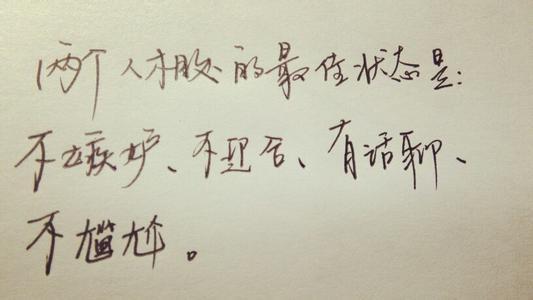 两个人相处的最佳状态是:
不嫉妒、不迎合、有话聊、
不尴尬。